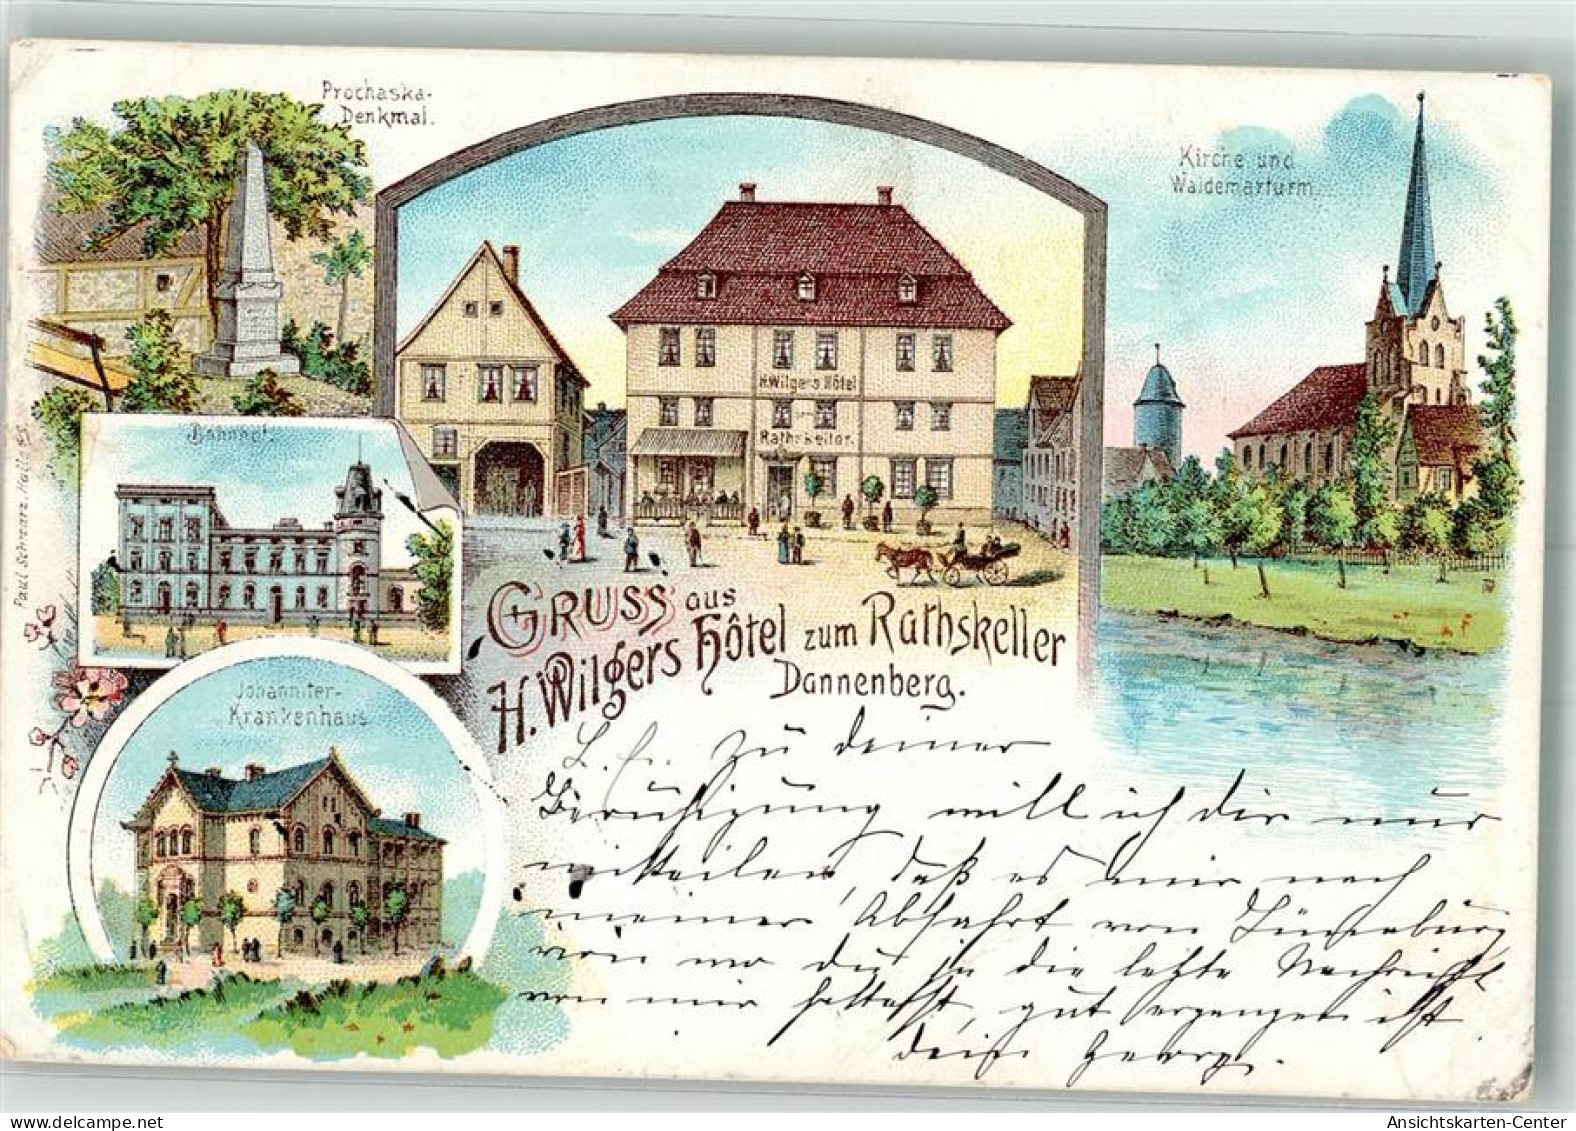 Prochaska-
Denkmal.
Kirche und
Waldemarturm.
Bahnhof.
H. Wilgers Hôtel
zum
Rathskeller.
Paul Schwarz, Halle a/S.
GRUSS aus
H. Wilgers Hôtel zum Rathskeller
Dannenberg.
Johanniter-
Krankenhaus
L. Fr. Zu deiner
Beruhigung will ich dir nur
mitteilen, daß es mir nach
meiner Abfahrt von Lüneburg
von wo du ja die letzte Nachricht
von mir hattest, gut ergangen ist
dein Georg.
Ansichtskarten-Center